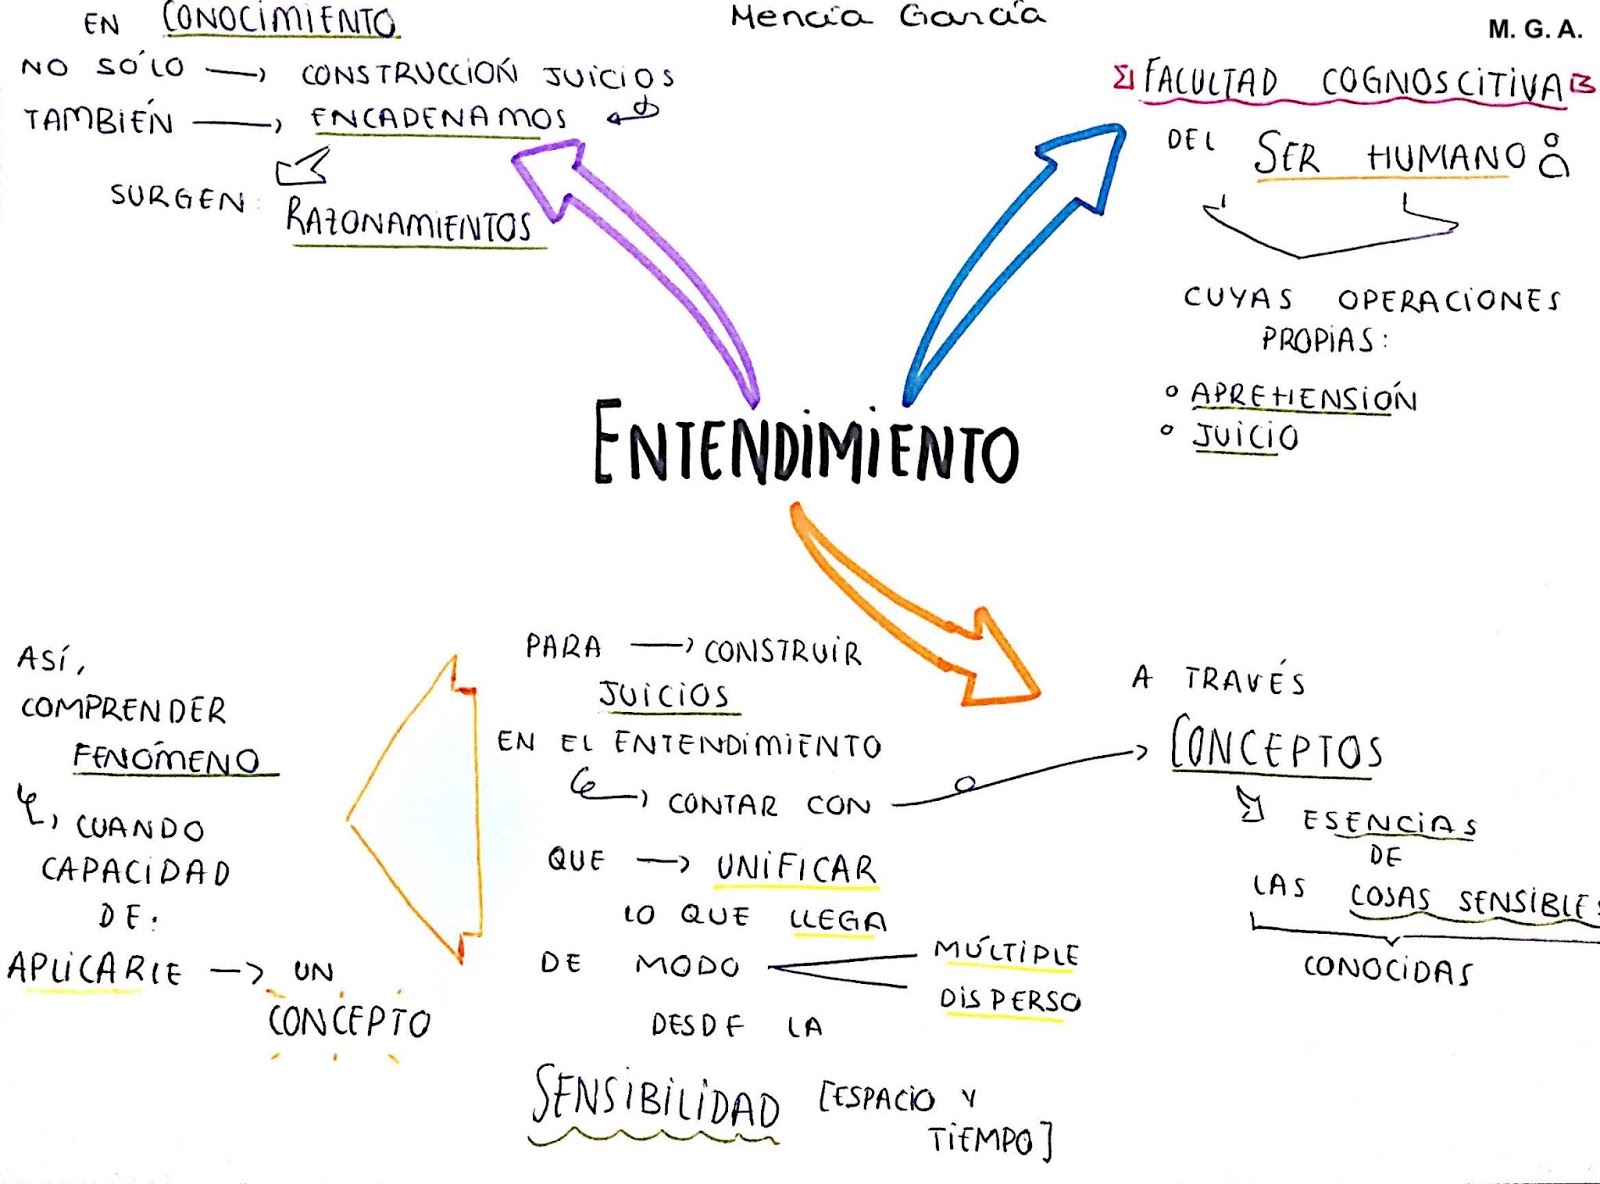 EN CONOCIMIENTO
NO SÓLO → CONSTRUCCIÓN JUICIOS
TAMBIÉN → ENCADENAMOS
SURGEN:
RAZONAMIENTOS
Mencía García
M. G. A.
FACULTAD COGNOSCITIVA
DEL SER HUMANO
CUYAS OPERACIONES
PROPIAS:
APREHENSIÓN
JUICIO
ENTENDIMIENTO
PARA → CONSTRUIR
JUICIOS
EN EL ENTENDIMIENTO
CONTAR CON
QUE → UNIFICAR
LO QUE LLEGA
DE MODO
MÚLTIPLE
DISPERSO
DESDE LA
SENSIBILIDAD [ESPACIO Y
TIEMPO]
A TRAVÉS
CONCEPTOS
ESENCIAS
DE
LAS COSAS SENSIBLES
CONOCIDAS
ASÍ,
COMPRENDER
FENÓMENO
CUANDO
CAPACIDAD
DE:
APLICARLE → UN
CONCEPTO